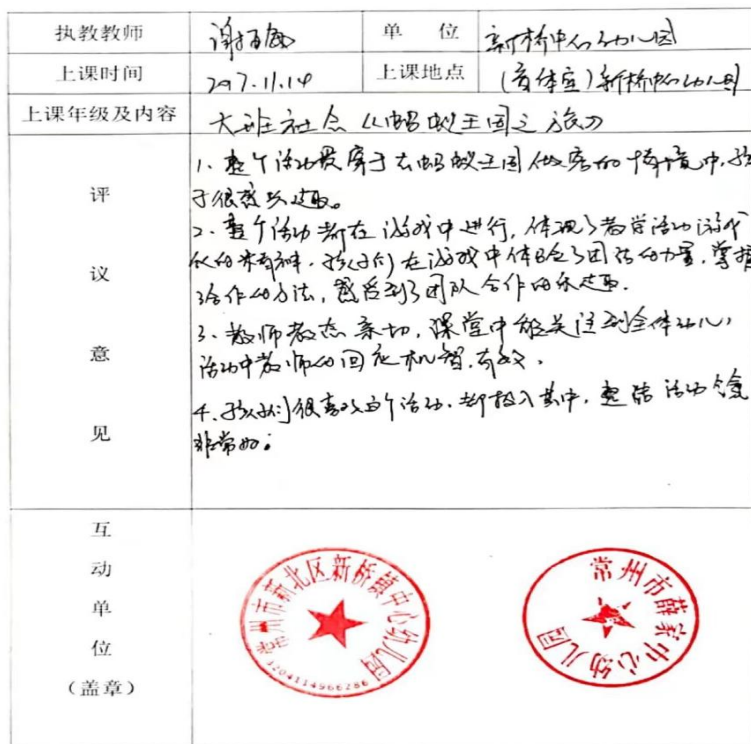 执教教师 谢 单位 新桥中心幼儿园
上课时间 2017.11.14 上课地点 (音体室)新桥中心幼儿园
上课年级及内容 大班社会《蚂蚁王国之旅》
评议意见
1、整个活动贯穿于去蚂蚁王国做客的情境中,孩
子很感兴趣。
2、整个活动都在游戏中进行,体现了教学活动游戏
化的精神,孩子们在游戏中体验了团结的力量,掌握
了合作的方法,感受到了团队合作的乐趣。
3、教师教态亲切,课堂中能关注到全体幼儿,
活动中教师的回应机智、有效。
4、孩子们很喜欢这个活动,都投入其中,整 活动
非常好。
互动单位(盖章)
常州市新北区新桥镇中心幼儿园
3204114966286
常州市薛家中心幼儿园